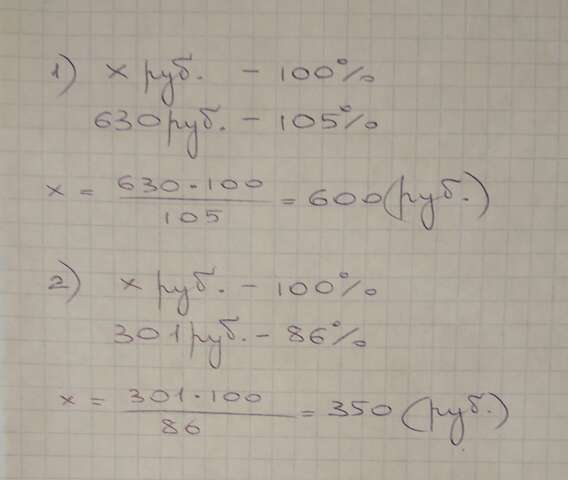 1) x руб. - 100%
630 руб. - 105%
x = 630·100 / 105 = 600 (руб.)
2) x руб. - 100%
301 руб. - 86%
x = 301·100 / 86 = 350 (руб.)